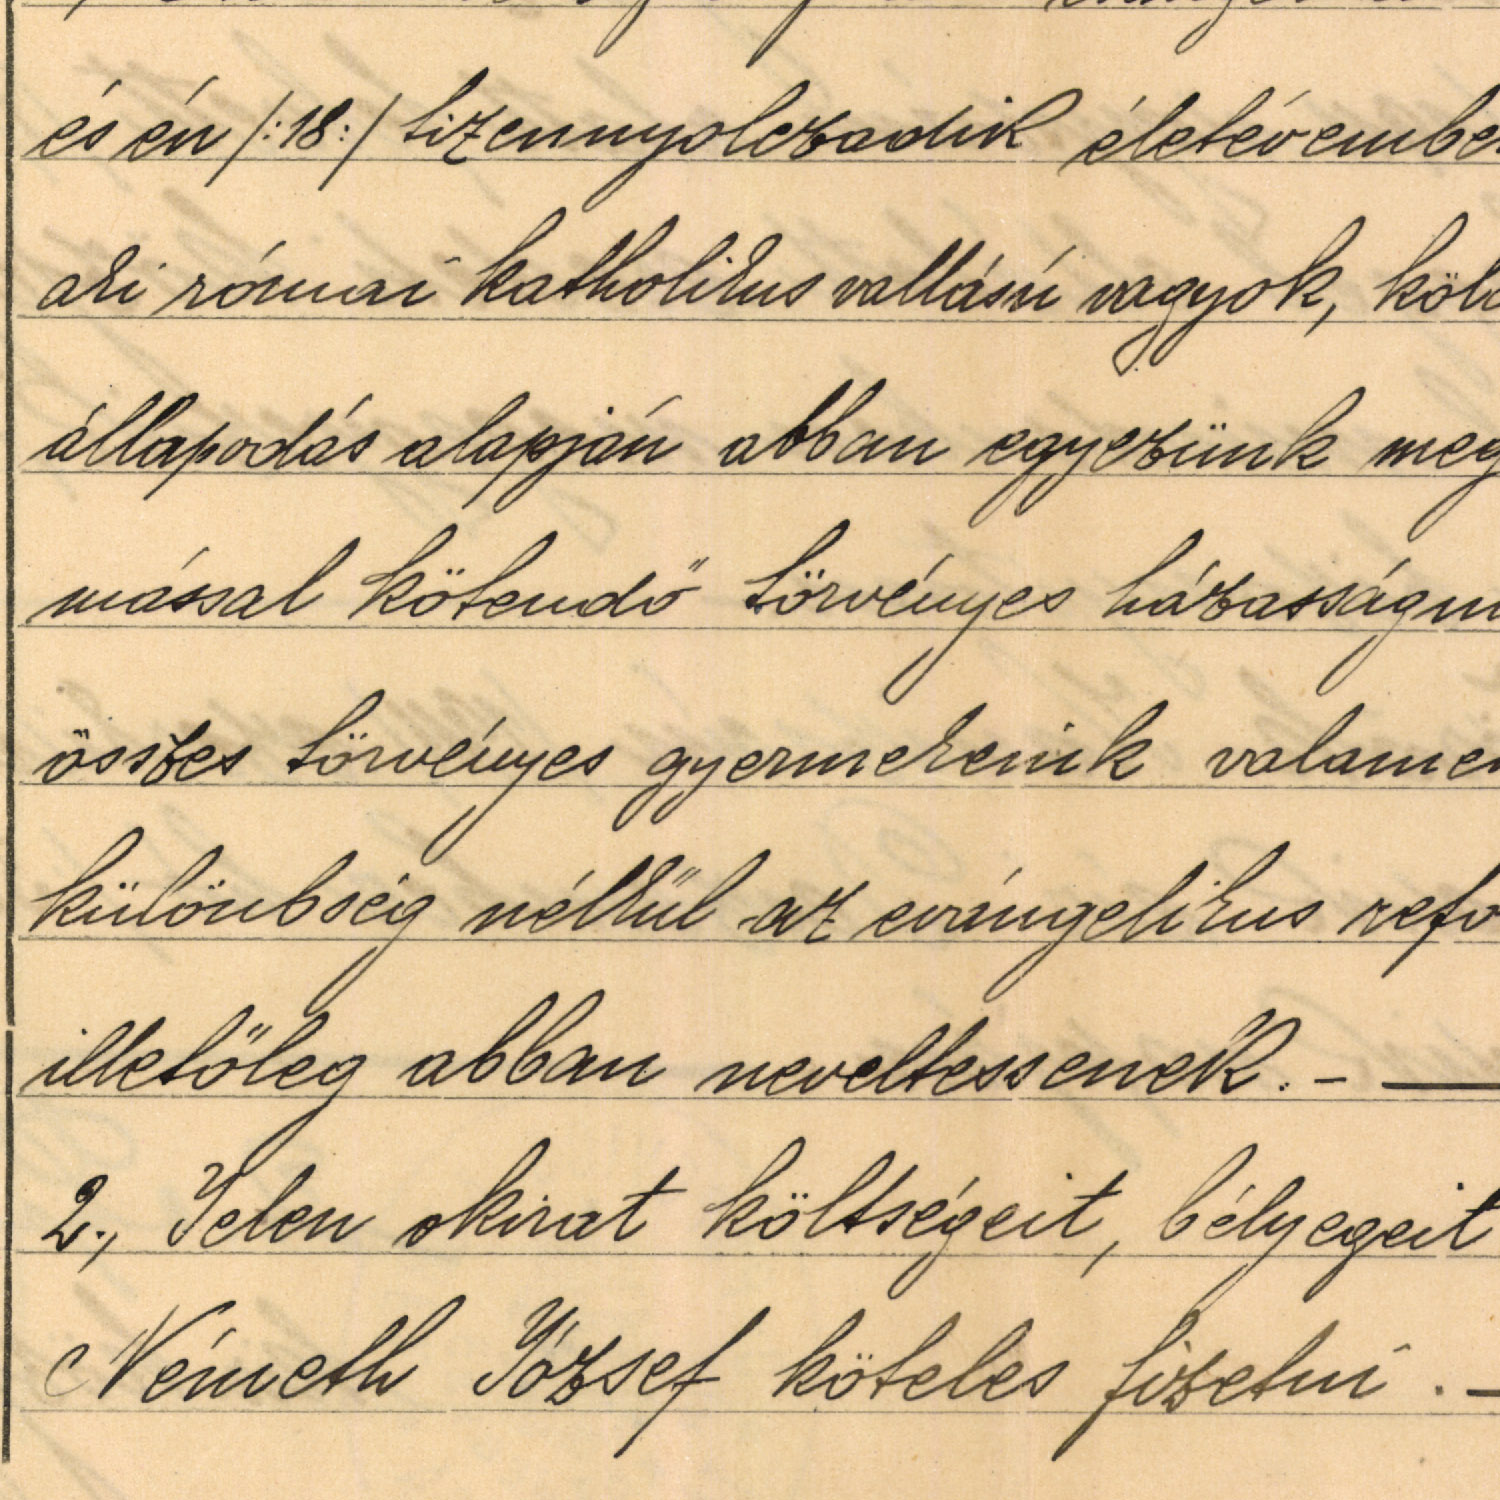 és én /:18:/ tizennyolczadik életévembe
aki római katholikus vallású vagyok, köl
állapodás alapján abban egyezünk meg
mással kötendő törvényes házasságun
összes törvényes gyermekeink valamen
különbség nélkül az evángelikus refo
illetőleg abban neveltessenek. - —
2., Jelen okirat költségeit, bélyegeit
Németh József köteles fizetni . —